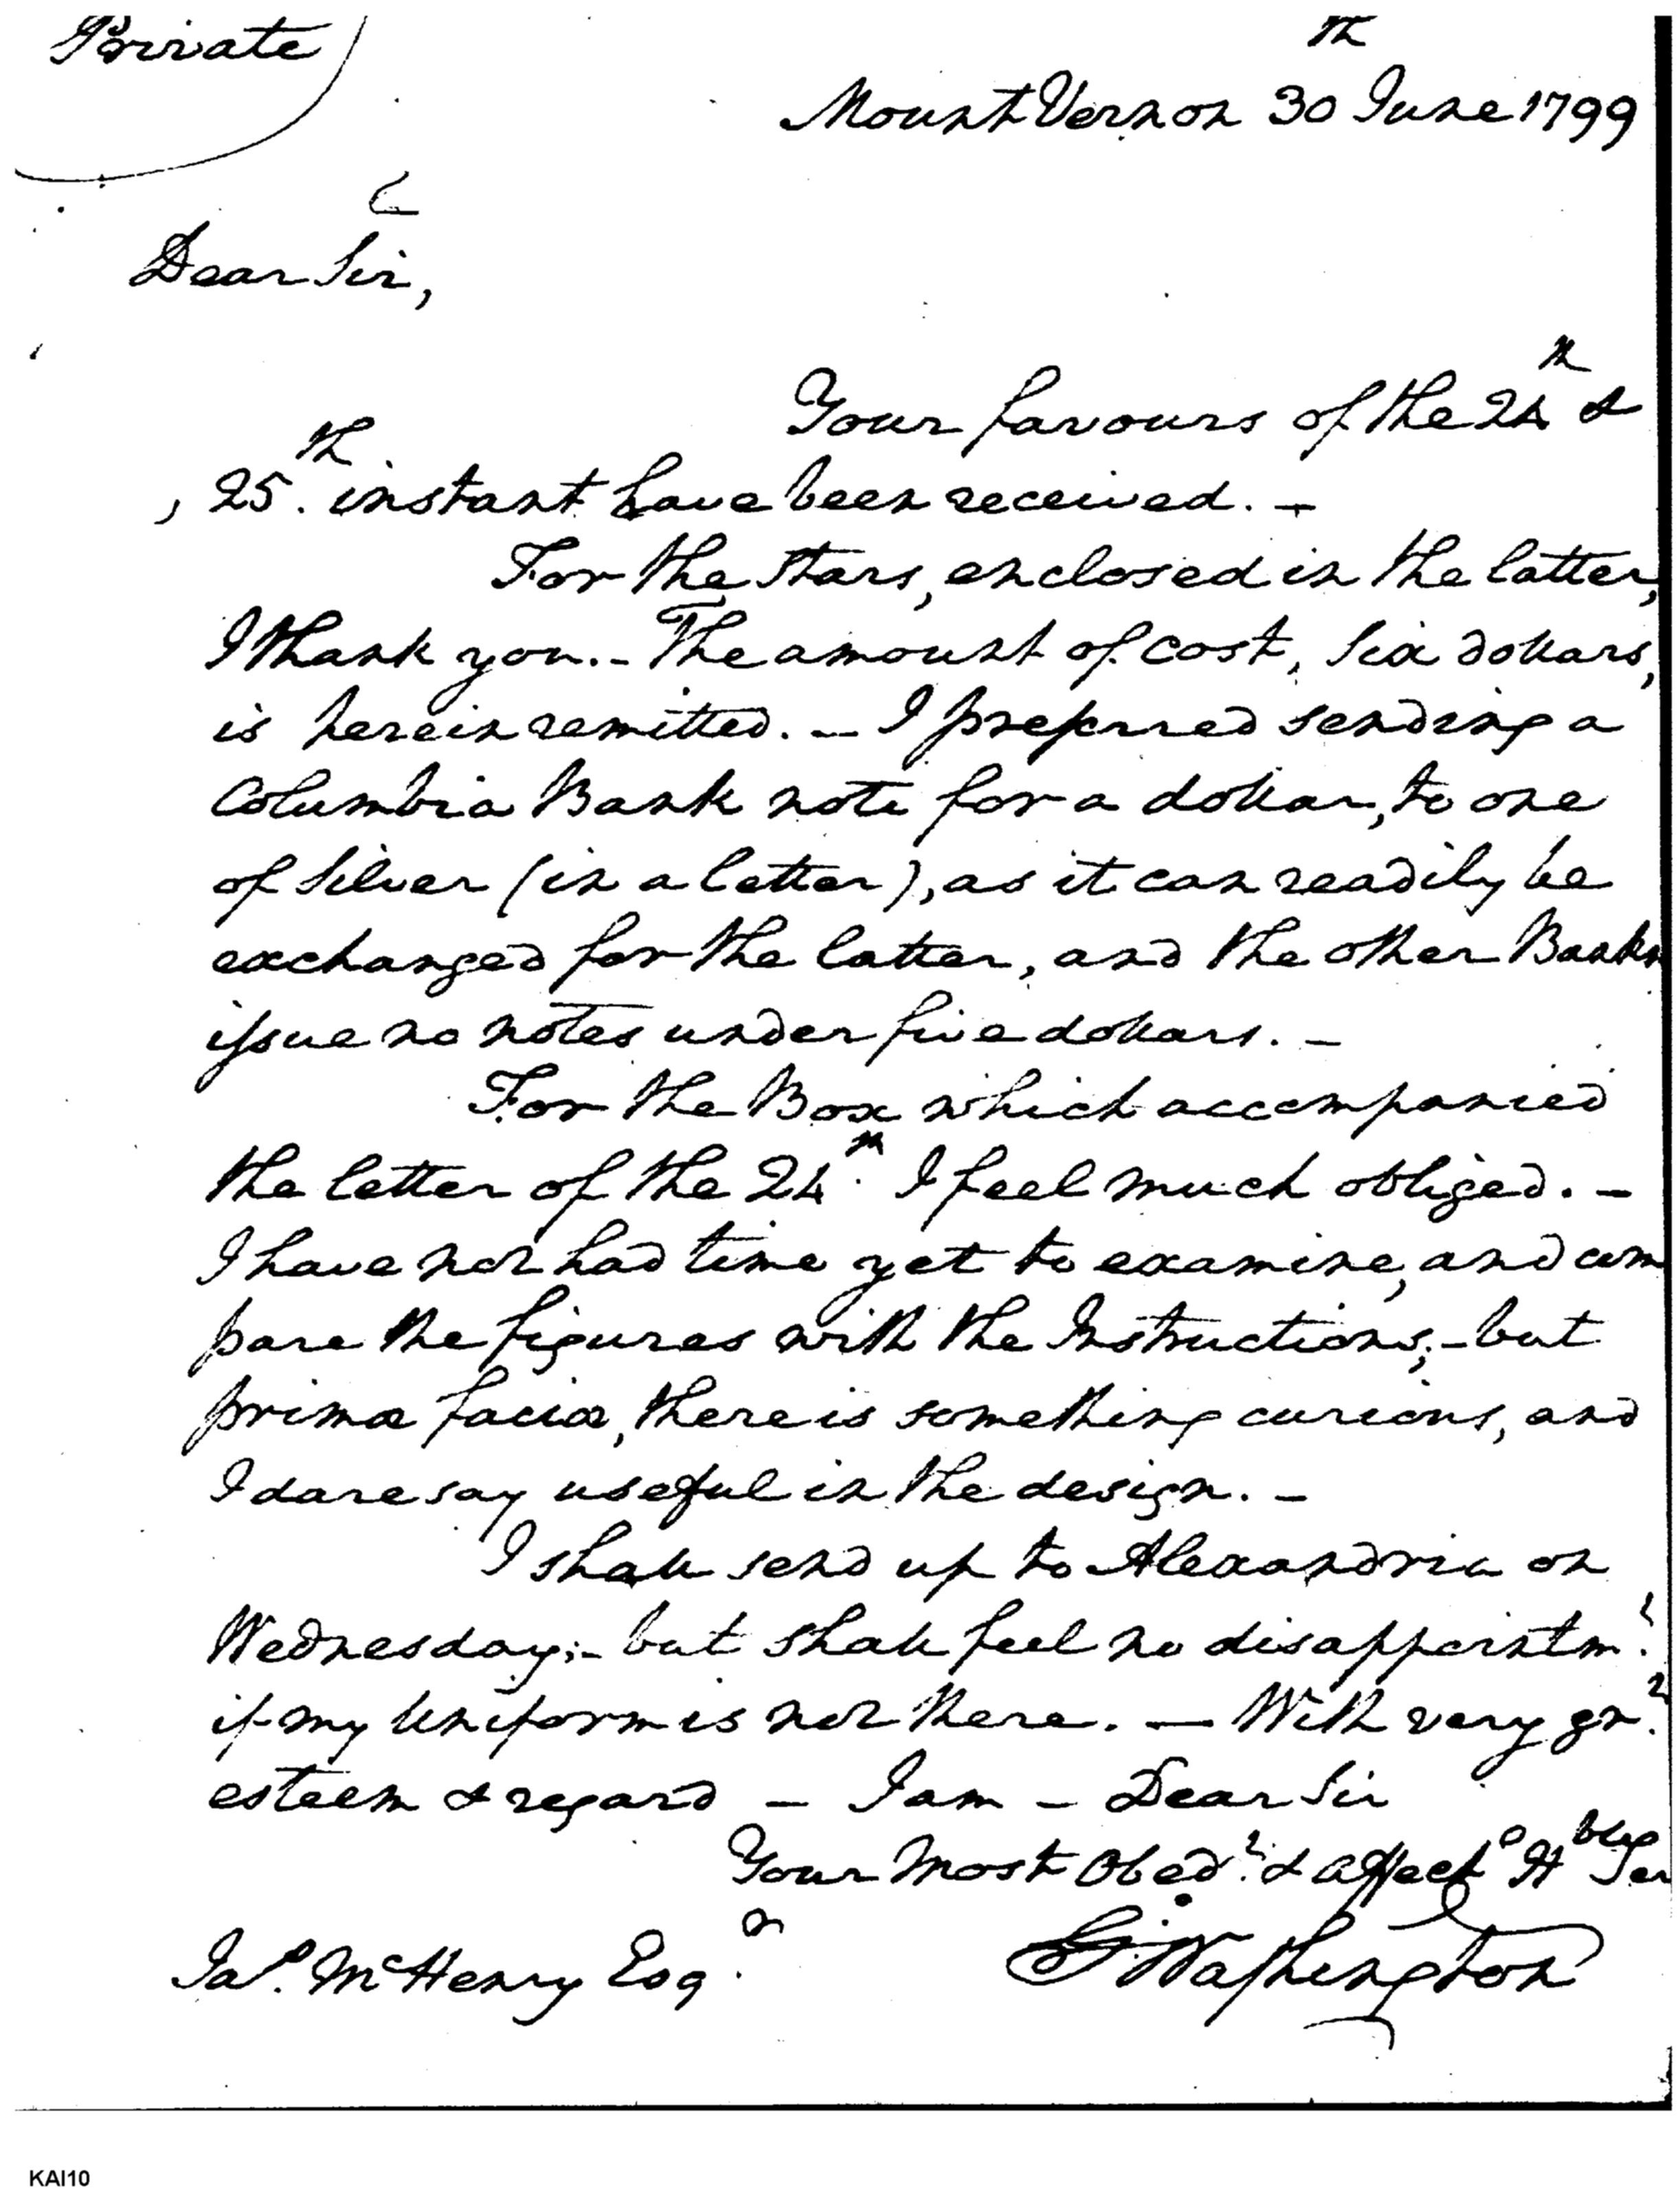 Private
Mount Vernon 30th June 1799
Dear Sir,
Your favours of the 24th &
25th instant have been received. –
For the Stars, enclosed in the latter,
I thank you. – The amount of cost, Six dollars,
is herein remitted. – I preferred sending a
Columbia Bank note for a dollar, to one
of Silver (in a letter), as it can readily be
exchanged for the latter, and the other Banks
issue no notes under five dollars. –
For the Box which accompanied
the letter of the 24th I feel much obliged. –
I have not had time yet to examine, and com
pare the figures with the Instructions; – but
primæ faciæ, there is something curious, and
I dare say useful in the design. –
I shall send up to Alexandria on
Wednesday; – but shall feel no disappointmt
if my Uniform is not there. – With very grt
esteem & regard – I am – Dear Sir
Your Most Obedt & Affecte Hble Ser
Jas McHenry Esqr
G. Washington
KAI10